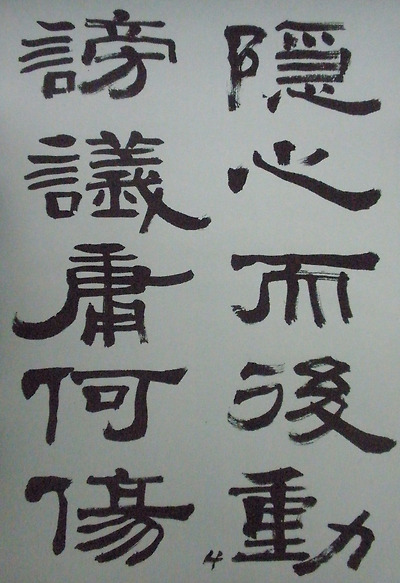 隱心而後動
謗議庸何傷
4